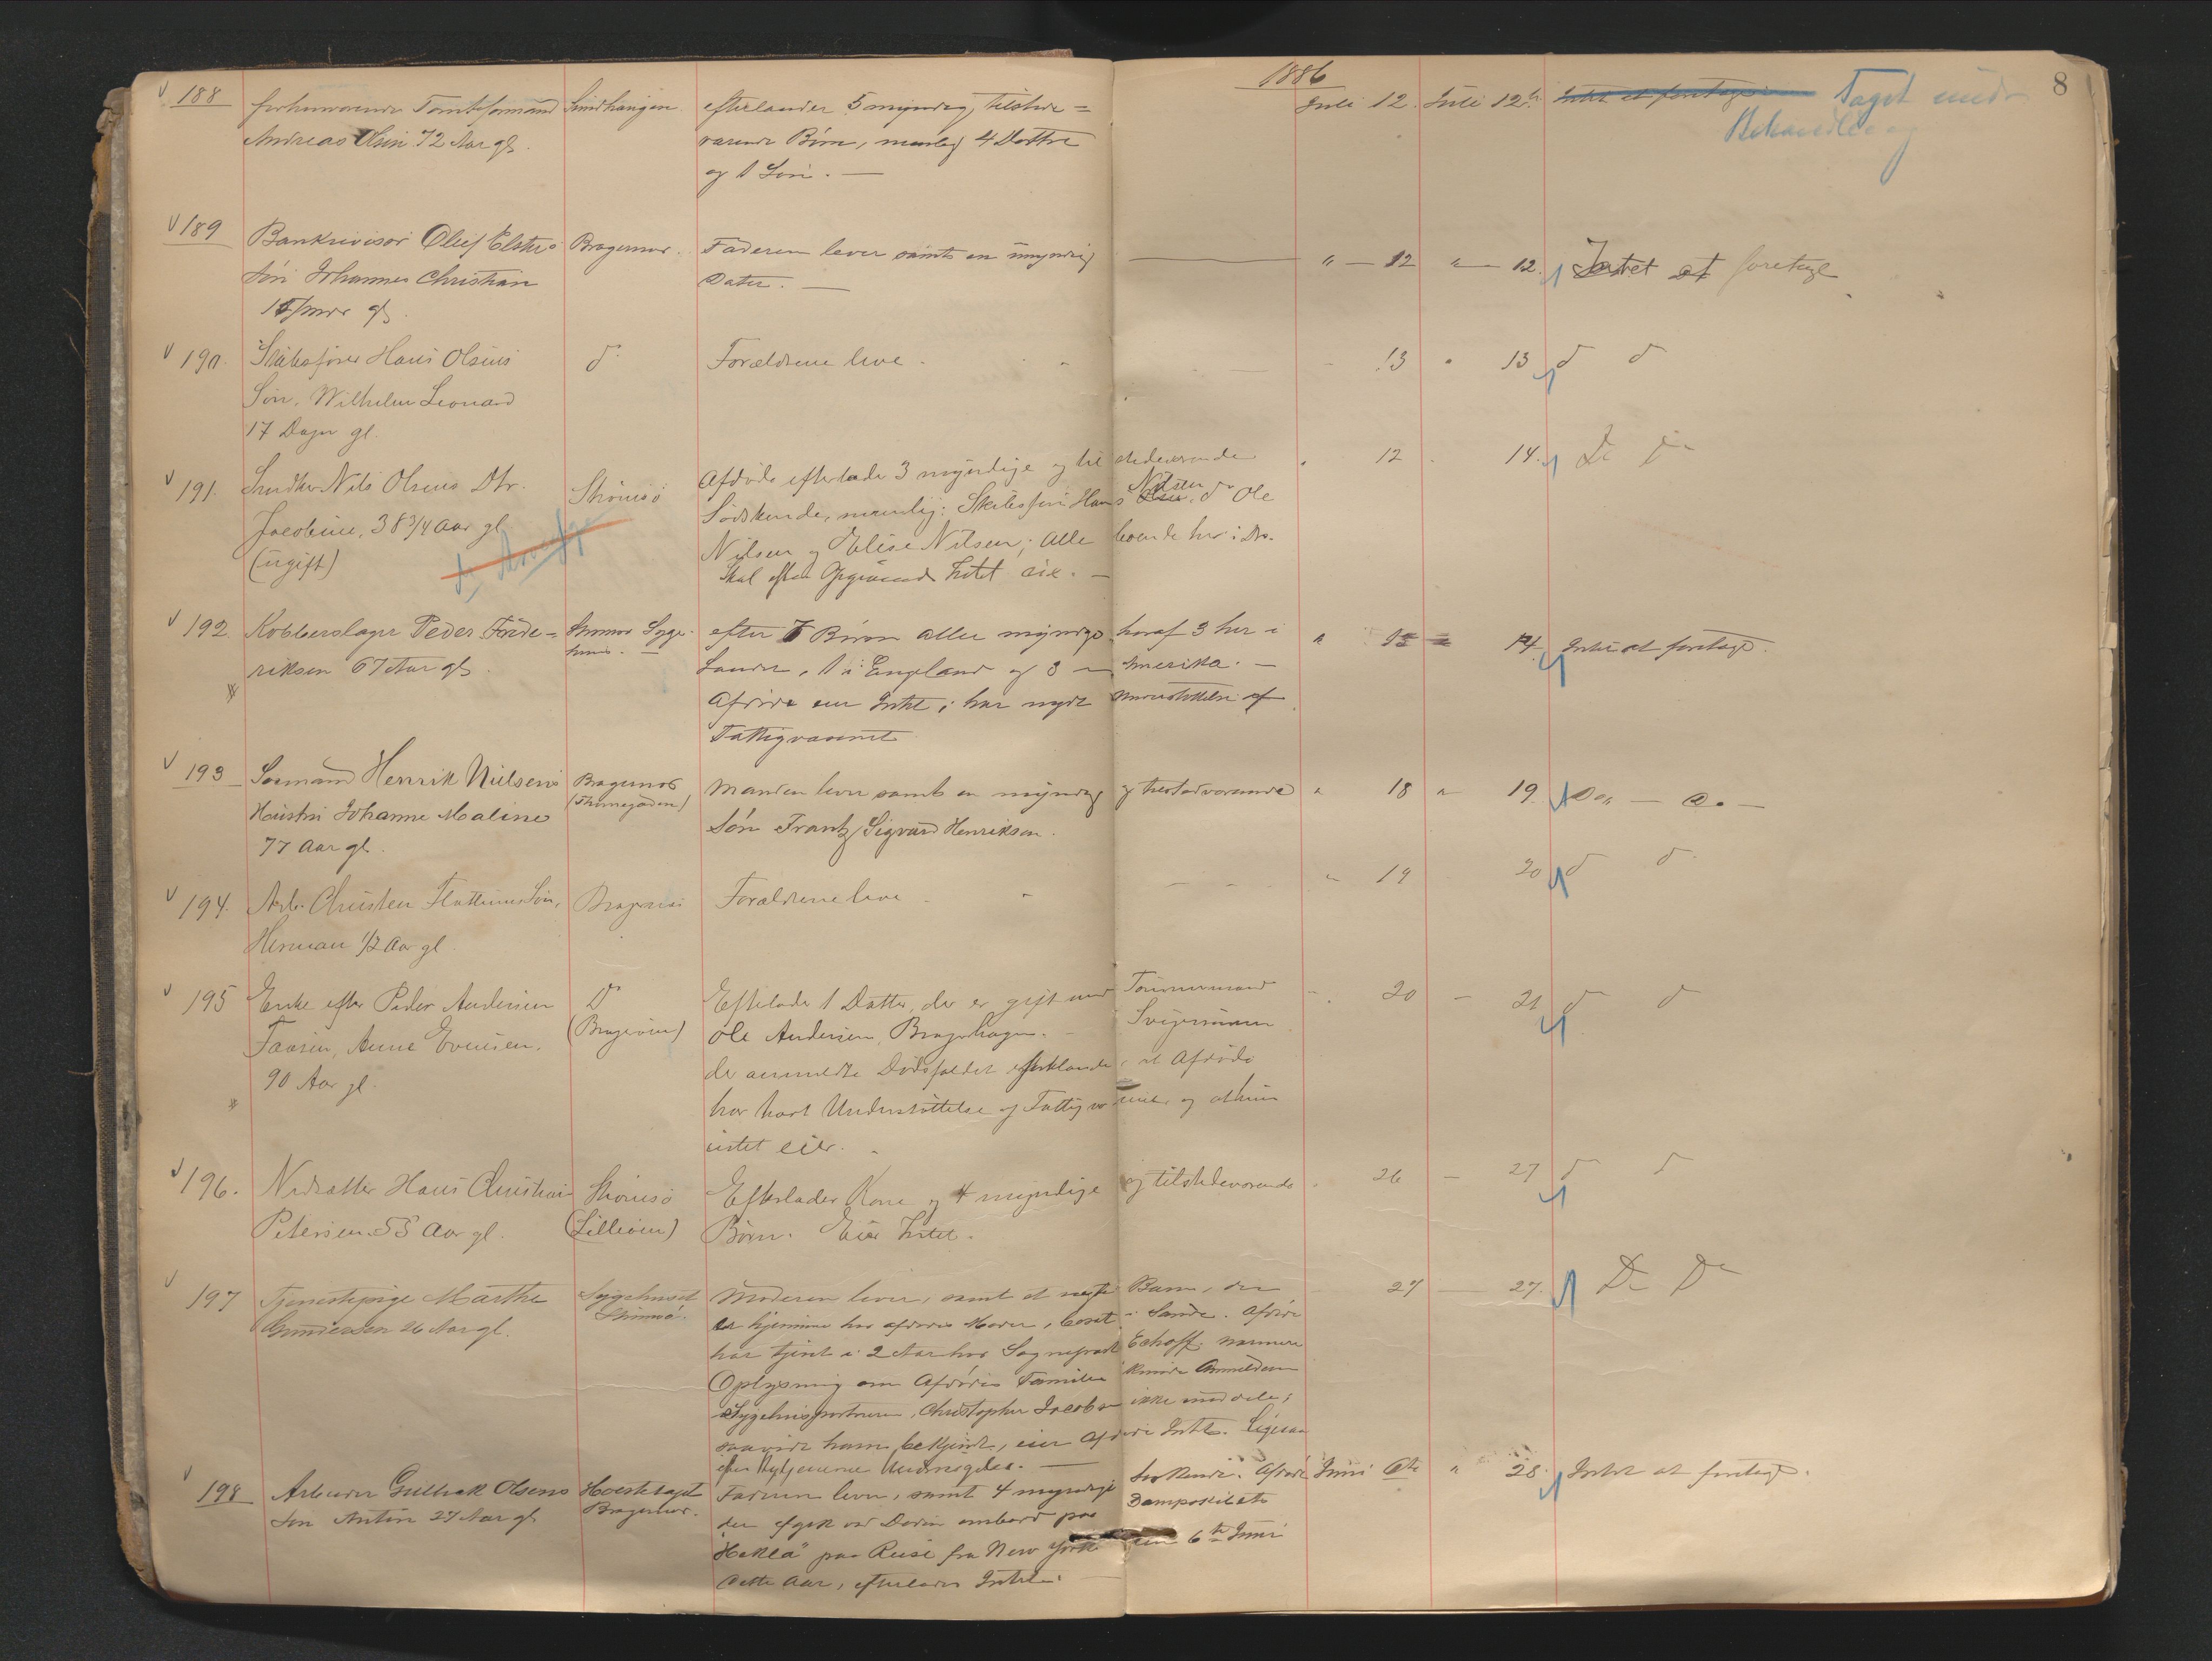 1886
8
188 forhenværende Tomteformand Andreas Olsen 72 Aar gl.
efterlader 5 myndige, tilstede=
værende Børn, nemlig 4 Døttre
og 1 Søn. —
Juli 12. Juli 12. Intet at foretage Taget under
Behandling
189 Bankrevisor Oluf Elsters Bragernes. Faderen lever samt en umyndig
Søn Johannes Christian
Datter. —
" — 12 " — 12. Intet at foretage
190. Skibsfører Hans Olsens d° Forældrene leve.
Søn, Wilhelm Leonard
17 Dager gl.
13 " 13 d d
191. Snedker Nils Olsens Dtr. Strömsö
Jacobine, 38 3/4 Aar gl
(ugift)
Afdøde efterlader 3 myndige og tilstedeværende
Södskende, nemlig: Skibsfører Hans Nilsen, d° Ole
Nilsen og Elise Nilsen; alle boende her i Dr.
Skal efter Opgivende Intet eie. —
12 14. D° D°
192. Kobberslager Peder Frede=
riksen 67 Aar gl.
Strømsø Syge
huus. —
efter 7 Børn alle myndige hvoraf 3 her i
Landet, 1 i England og 3 — Amerika. —
Afdøde eier Intet; har nydt Understøttelse af
Fattigvæsenet
14 Intet at foretage.
193 Sømand Henrik Nielsens
Hustru Johanne Maline
77 Aar gl.
Bragernes
Manden lever samt en myndig og tilstedeværende
Søn Frantz Sigvard Henriksen.
" 18 " 19. Do — Do —
194. Arb. Christen Søn, Bragernes Forældrene leve
Herman 1/2 Aar gl
" 19 20 d d
195 Enke efter Peder Andersen
Anne Evensen.
90 Aar gl.
D°
(Bragerøen)
Efterlader 1 Datter, der er gift med Tømmermand
Ole Andersen, Bragerhagen. — Svigersønnen
der anmeldte Dödsfaldet forklarede, at Afdöde
har havt Understöttelse af Fattigvæsenet, og at hun
intet eier.
20 — 21 d d
196. Nedsætter Hans Christian
Petersen 55 Aar gl.
Strömsö
(Lilleöen)
Efterlader Kone og 4 myndige og tilstedeværende
Börn. Eier Intet.
26 — 27 d d
197 Tjenestepige Marthe
Gundersen 26 Aar gl.
Sygehuset
Strømsø.
Moderen lever, samt et uægte Barn, der
er hjemme hos afdødes Moder, bosat i Sande. Afdøde
har tjent i 2 Aar hos Sogneprest Eckhoff. Nærmere
Oplysning om Afdødes Familie kunde Anmelderen
Sygehusportneren, Christopher Jacobsen ikke meddele;
saavidt ham bekjendt, eier Afdøde Intet.
27 — 27. D° D°
198 Arbeider Gulbrand Olsens
Søn Anton 27 Aar gl
Bragernes.
Faderen lever, samt 4 myndige Søskende. Afdøde
der afgik ved Døden ombord paa Dampskibet
"Hekla" paa Reise fra New York den 6te Juni
dette Aar, efterlader Intet. —
Juni 6te " 28. Intet at foretage.